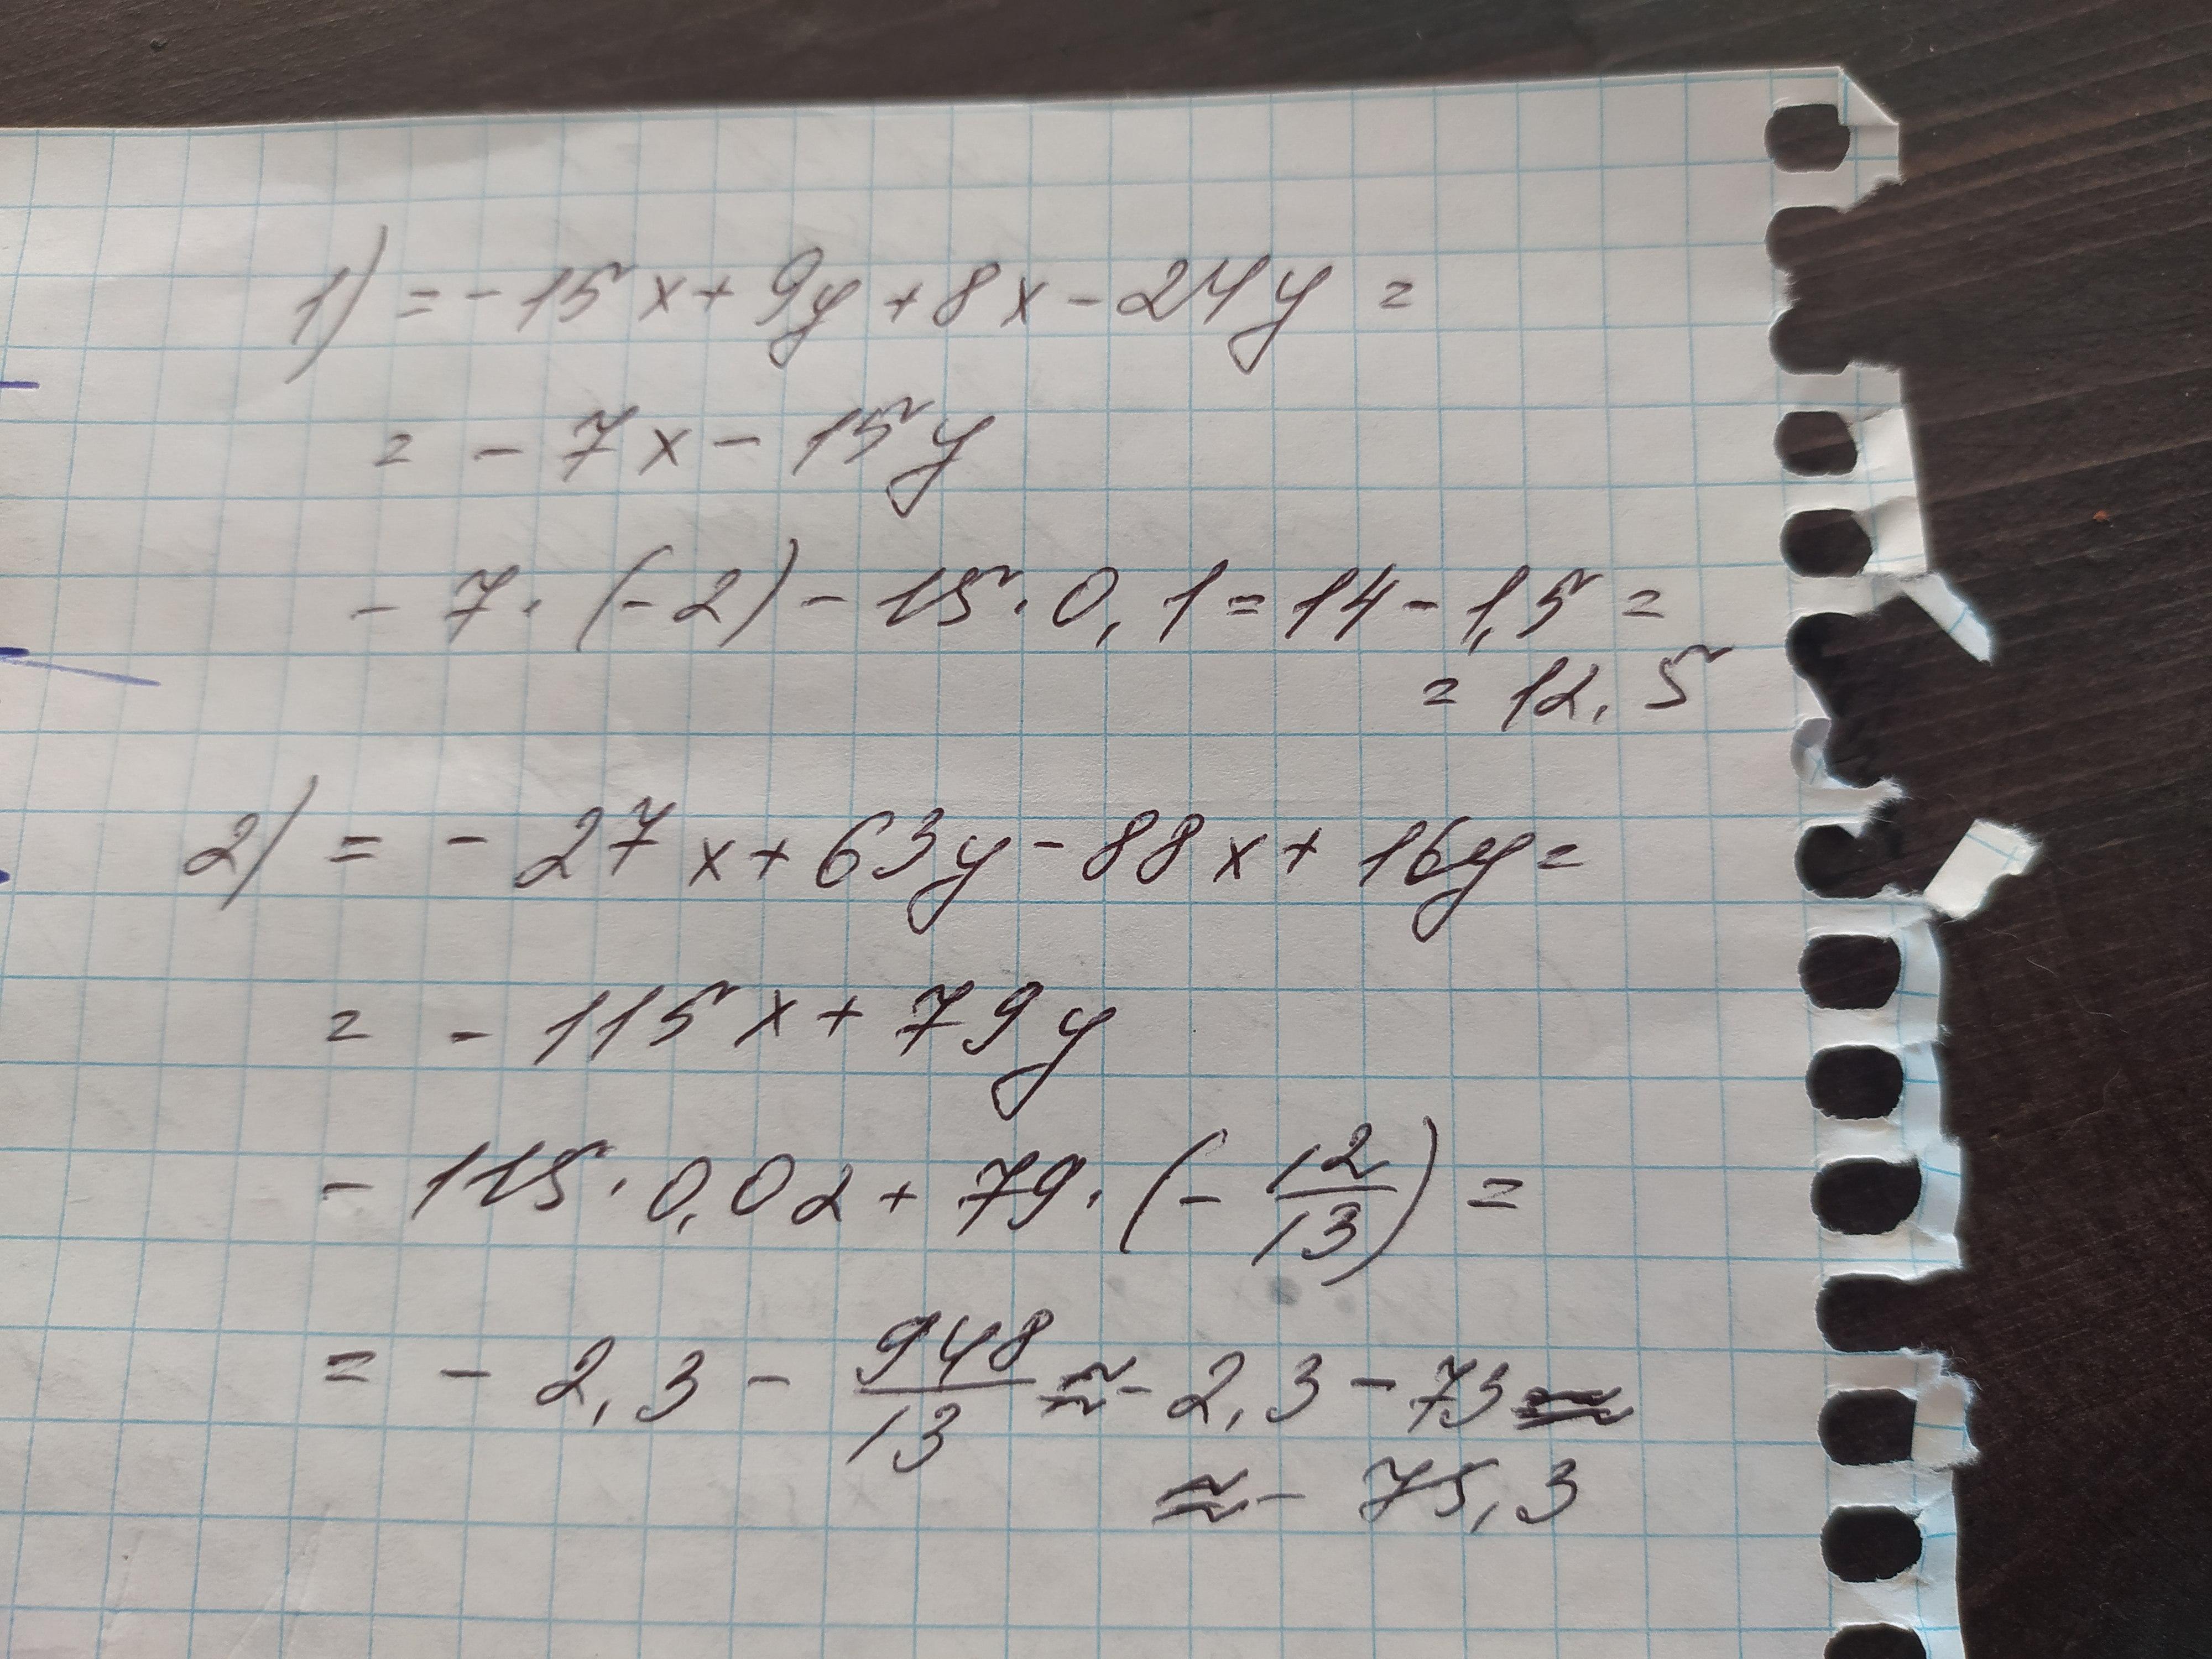 1) = - 15x + 9y + 8x - 24y =
= - 7x - 15y
- 7 · (-2) - 15 · 0,1 = 14 - 1,5 =
= 12,5
2) = - 27x + 63y - 88x + 16y =
= - 115x + 79y
- 115 · 0,02 + 79 · (- 12/13) =
= - 2,3 - 948/13 ≈ - 2,3 - 73 ≈
≈ - 75,3